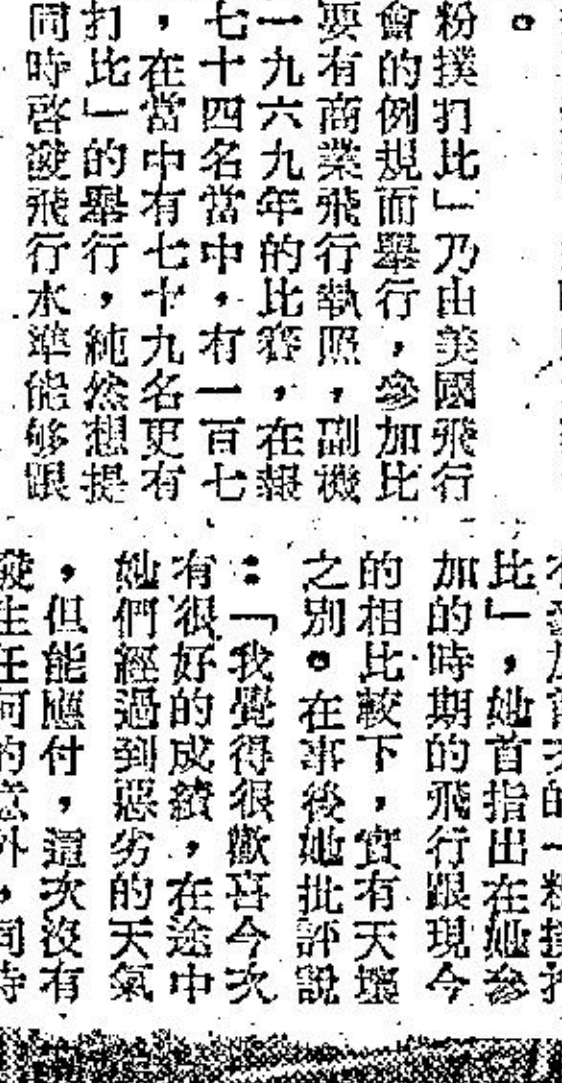 。
粉撲打比」乃由美國飛行
會的例規而舉行，參加比
要有商業飛行執照，副機
一九六九年的比賽，在報
七十四名當中，有一百七
，在當中有七十九名更有
打比」的舉行，純然想提
同時啓發飛行水準能够跟
的「粉撲打
比」，她首指出在她參
加的時期的飛行跟現今
的相比較下，實有天壤
之別。在事後她批評說
：「我覺得很歡喜今次
有很好的成績，在途中
她們經過到惡劣的天氣
，但能應付，這次沒有
發生任何的意外，同時